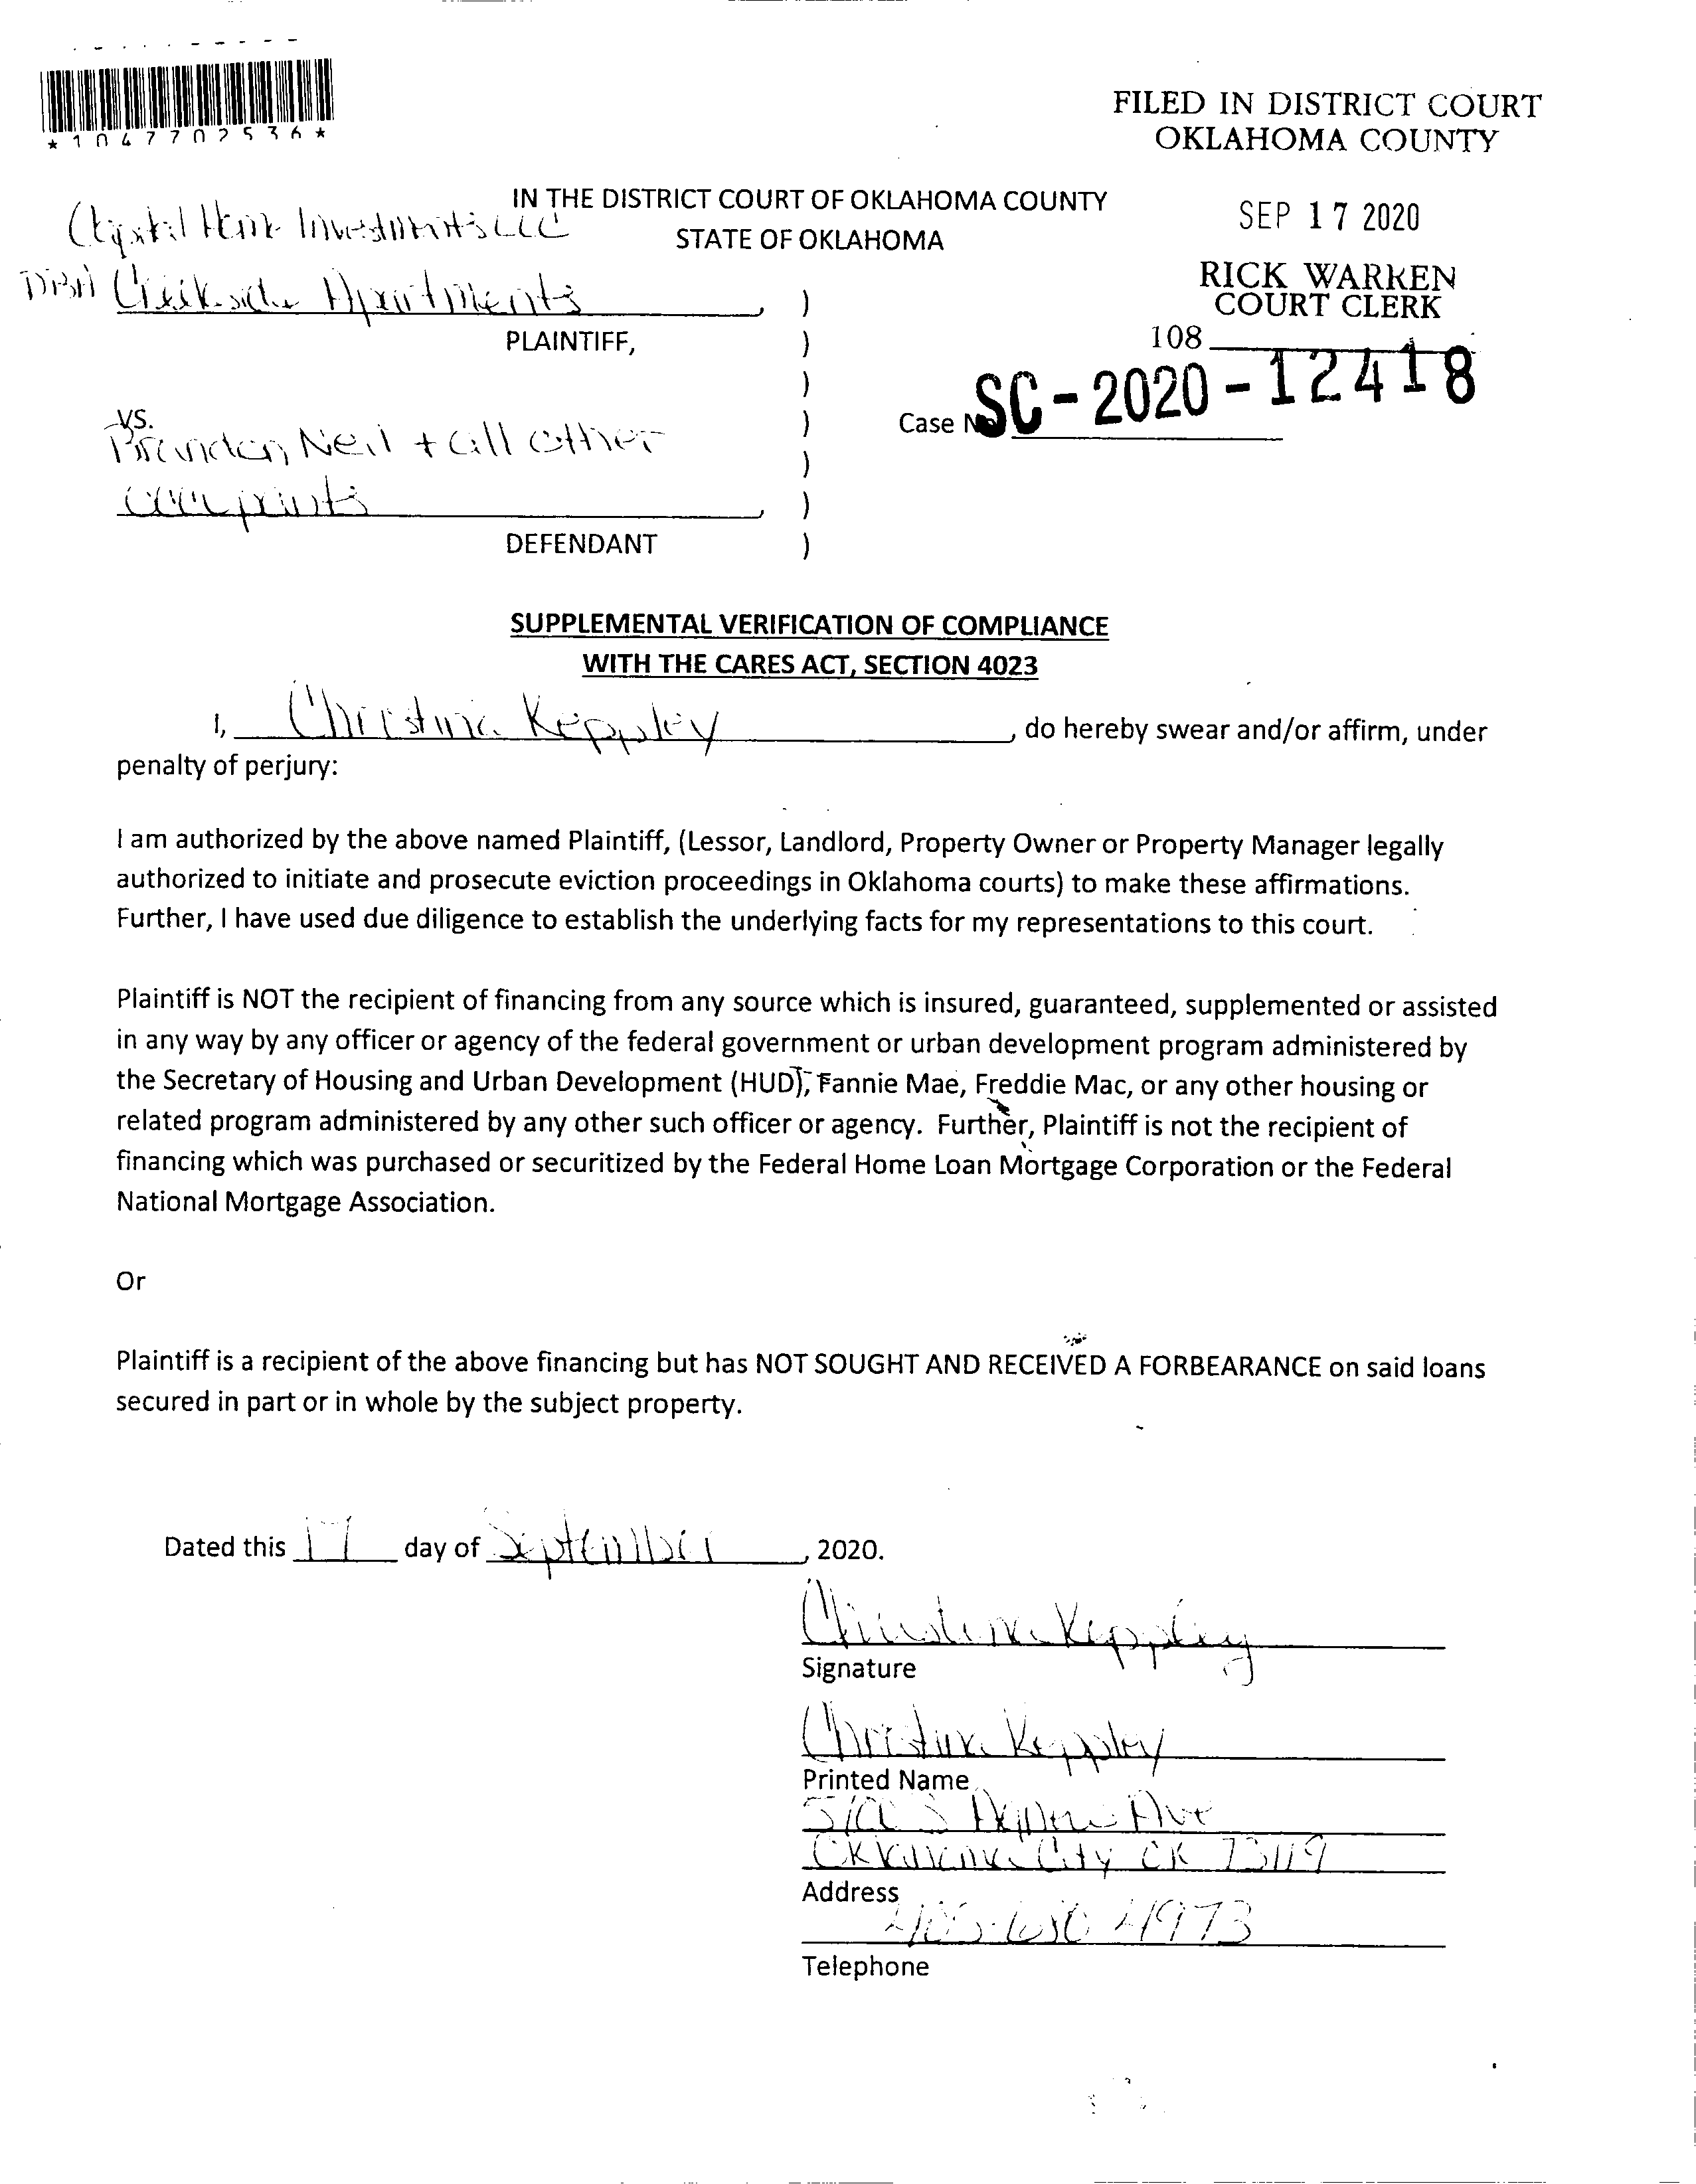 *1047702536*
FILED IN DISTRICT COURT
OKLAHOMA COUNTY
IN THE DISTRICT COURT OF OKLAHOMA COUNTY
STATE OF OKLAHOMA
SEP 17 2020
RICK WARREN
COURT CLERK
108
Investments LLC
DBA Creekside Apartments
PLAINTIFF,
)
)
)
)
)
)
)
Case No
SC-2020-12418
vs.
Brandon Neil + all other
occupants
DEFENDANT
SUPPLEMENTAL VERIFICATION OF COMPLIANCE
WITH THE CARES ACT, SECTION 4023
I, Christina Keppley, do hereby swear and/or affirm, under
penalty of perjury:
I am authorized by the above named Plaintiff, (Lessor, Landlord, Property Owner or Property Manager legally
authorized to initiate and prosecute eviction proceedings in Oklahoma courts) to make these affirmations.
Further, I have used due diligence to establish the underlying facts for my representations to this court.
Plaintiff is NOT the recipient of financing from any source which is insured, guaranteed, supplemented or assisted
in any way by any officer or agency of the federal government or urban development program administered by
the Secretary of Housing and Urban Development (HUD), Fannie Mae, Freddie Mac, or any other housing or
related program administered by any other such officer or agency. Further, Plaintiff is not the recipient of
financing which was purchased or securitized by the Federal Home Loan Mortgage Corporation or the Federal
National Mortgage Association.
Or
Plaintiff is a recipient of the above financing but has NOT SOUGHT AND RECEIVED A FORBEARANCE on said loans
secured in part or in whole by the subject property.
Dated this 17 day of September, 2020.
Christina Keppley
Signature
Christina Keppley
Printed Name
S Ave
Oklahoma City OK 73119
Address
4973
Telephone